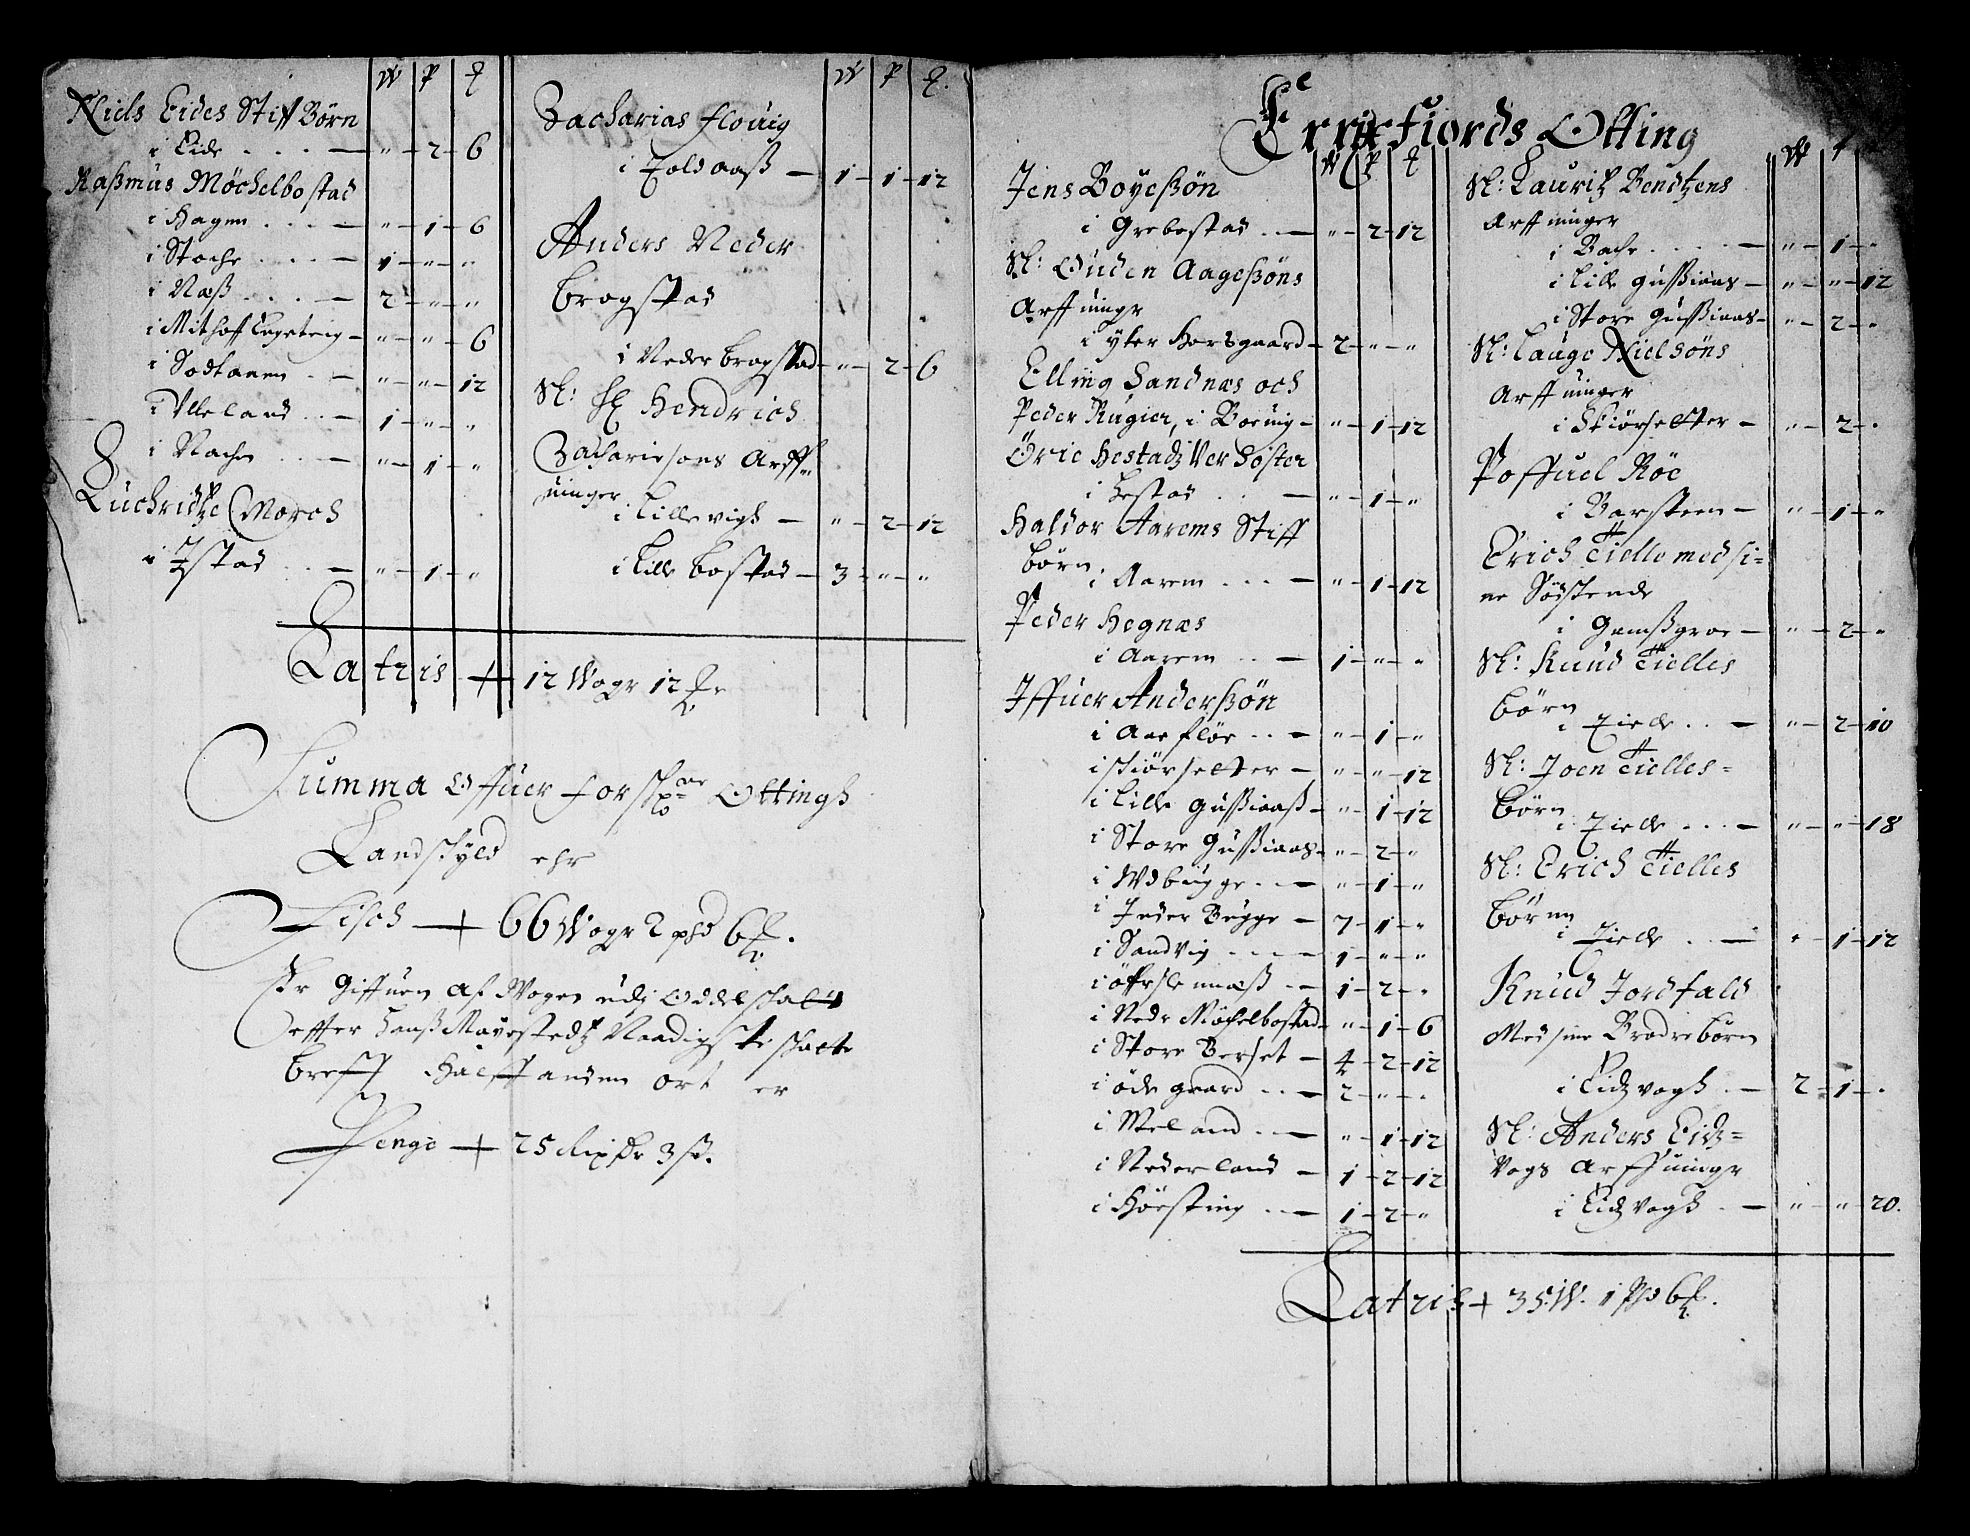 W P ℔
Niels Eides Stiff Børn
i Eide . . . — " — 2 — 6
Raßmus Möchelbostad
i Hagen . . . — " — 1 — 6
i Stoche . . . — 1 — " — "
i Næß . . . — 2 — " — "
i Mithoff — " — " — 6
i Sodtanem . — " — " — 12
i Ulleland . . — 1 — " — "
i Nachen . . — " — 1 — "
Luchridtze Morch
i Istad . . — " — 1 — "
W P ℔.
Zacharias Flouig
i Toldaaß — 1 — 1 — 12
Anders Neder
Bragstad
i Neder Bragstad — " — 2 — 6
Sl: Hr Hendrich
Zachariesøns Arff-
uinger
i Lillevigh — " — 2 — 12
i Lille Bostad — 3 — " — "
Latris + 12 Woger 12 ℔r
Summa Offuer forschr:ne Ottingh
Landschyld ehr
Fisch + 66 Woger 2 phd 6 ℔.
Er Giffuen af Wogen udj Oddelschatt
effter Hanß Mayestedtz Naadigste schatte
breff halffanden ort er
Penge + 25 Rixdr 3 ß.
Erritzfiords Otting
W P ℔
Jens Boyeßøn
i Grebostad . . — " — 2 — 12
Sl: Ouden Aageßøns
Arffuinger
i ytter Horsgaard — 2 — " — "
Elling Sandnæs och
Peder Rugier, i Boeuig — " — 1 — 12
Öric Hestadtz Ver Söster
i Hestad . . — " — 1 — "
Haldor Aarems Stiff
börn
i Aarem . . . — " — 1 — 12
Peder Hegnæs
i Aarem . . — 1 — " — "
Iffuer Anderßøn
i Aareflöe . . — " — 1 — "
i schiörsetter — " — " — 12
i Lille Gußiaaß — " — 1 — 12
i Store Gußiaas — " — 2 — "
i Wdbugge . . — " — 1 — "
i Inder Bugge — 7 — 1 — "
i Sandvig . . . — 1 — " — "
i öffrelennæß . . — 1 — 2 — "
i Nedr Möchelbostad — " — 1 — 6
i Store Berset — 4 — 2 — 12
i öde gaard . . — 2 — " — "
i Meland . . — " — 1 — 12
i Nederland — 1 — 2 — 12
i Hörsting . . — 1 — 2 — "
W P
Sl: Lauritz Bendtzens
Arffuinger
i Bache . . . . — " — 1 — "
i Lille Gußiaas — " — " — 12
i Store Gußiaas — " — 2 — "
Sl: Lauge Nielsöns
Arffuinger
i Schiörsetter — " — 2 — "
Poffuel Röe
i Varsteen — " — 1 — "
Erich Tielle med si-
ne Söstende
i Gamßgroe — " — 2 — "
Sl: Knud Tielles
börn
i Tielle . . — " — 2 — 10
Sl: Joen Tielles-
börn
i Tielle . . . — " — " — 18
Sl: Erich Tielles
börnn
i Tielle . . — " — 1 — 12
Knud Jordfald
Med sine Brodrebörn
i Eidzvogh . — 2 — 1 — "
Sl: Anders Eidz-
Vogs Arffuinger
i Eidzvogh . — " — " — 20.
Latris + 35 W. 1 Phd 6 ℔.